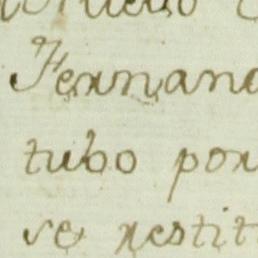 Fernand
tubo por
se restit